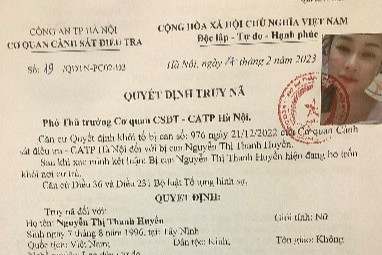 CÔNG AN TP HÀ NỘI
CƠ QUAN CẢNH SÁT ĐIỀU TRA
CỘNG HÒA XÃ HỘI CHỦ NGHĨA VIỆT NAM
Độc lập - Tự do - Hạnh phúc
Số: 19
Hà Nội, ngày tháng 2 năm 2023
QUYẾT ĐỊNH TRUY NÃ
Phó Thủ trưởng Cơ quan CSĐT - CATP Hà Nội.
Căn cứ Quyết định khởi tố bị can số: 976 ngày 21/12/2022 của Cơ quan Cảnh
sát điều tra - CATP Hà Nội đối với bị can Nguyễn Thị Thanh Huyền.
Sau khi xác minh kết luận: Bị can Nguyễn Thị Thanh Huyền hiện đang bỏ trốn
khỏi nơi cư trú.
Căn cứ Điều 36 và Điều 231 Bộ luật Tố tụng hình sự.
QUYẾT ĐỊNH:
Truy nã đối với:
Họ tên: Nguyễn Thị Thanh Huyền Giới tính: Nữ
Sinh ngày 7 tháng 8 năm 1996, tại: Tây Ninh
Quốc tịch: Việt Nam; Dân tộc: Kinh; Tôn giáo: Không.